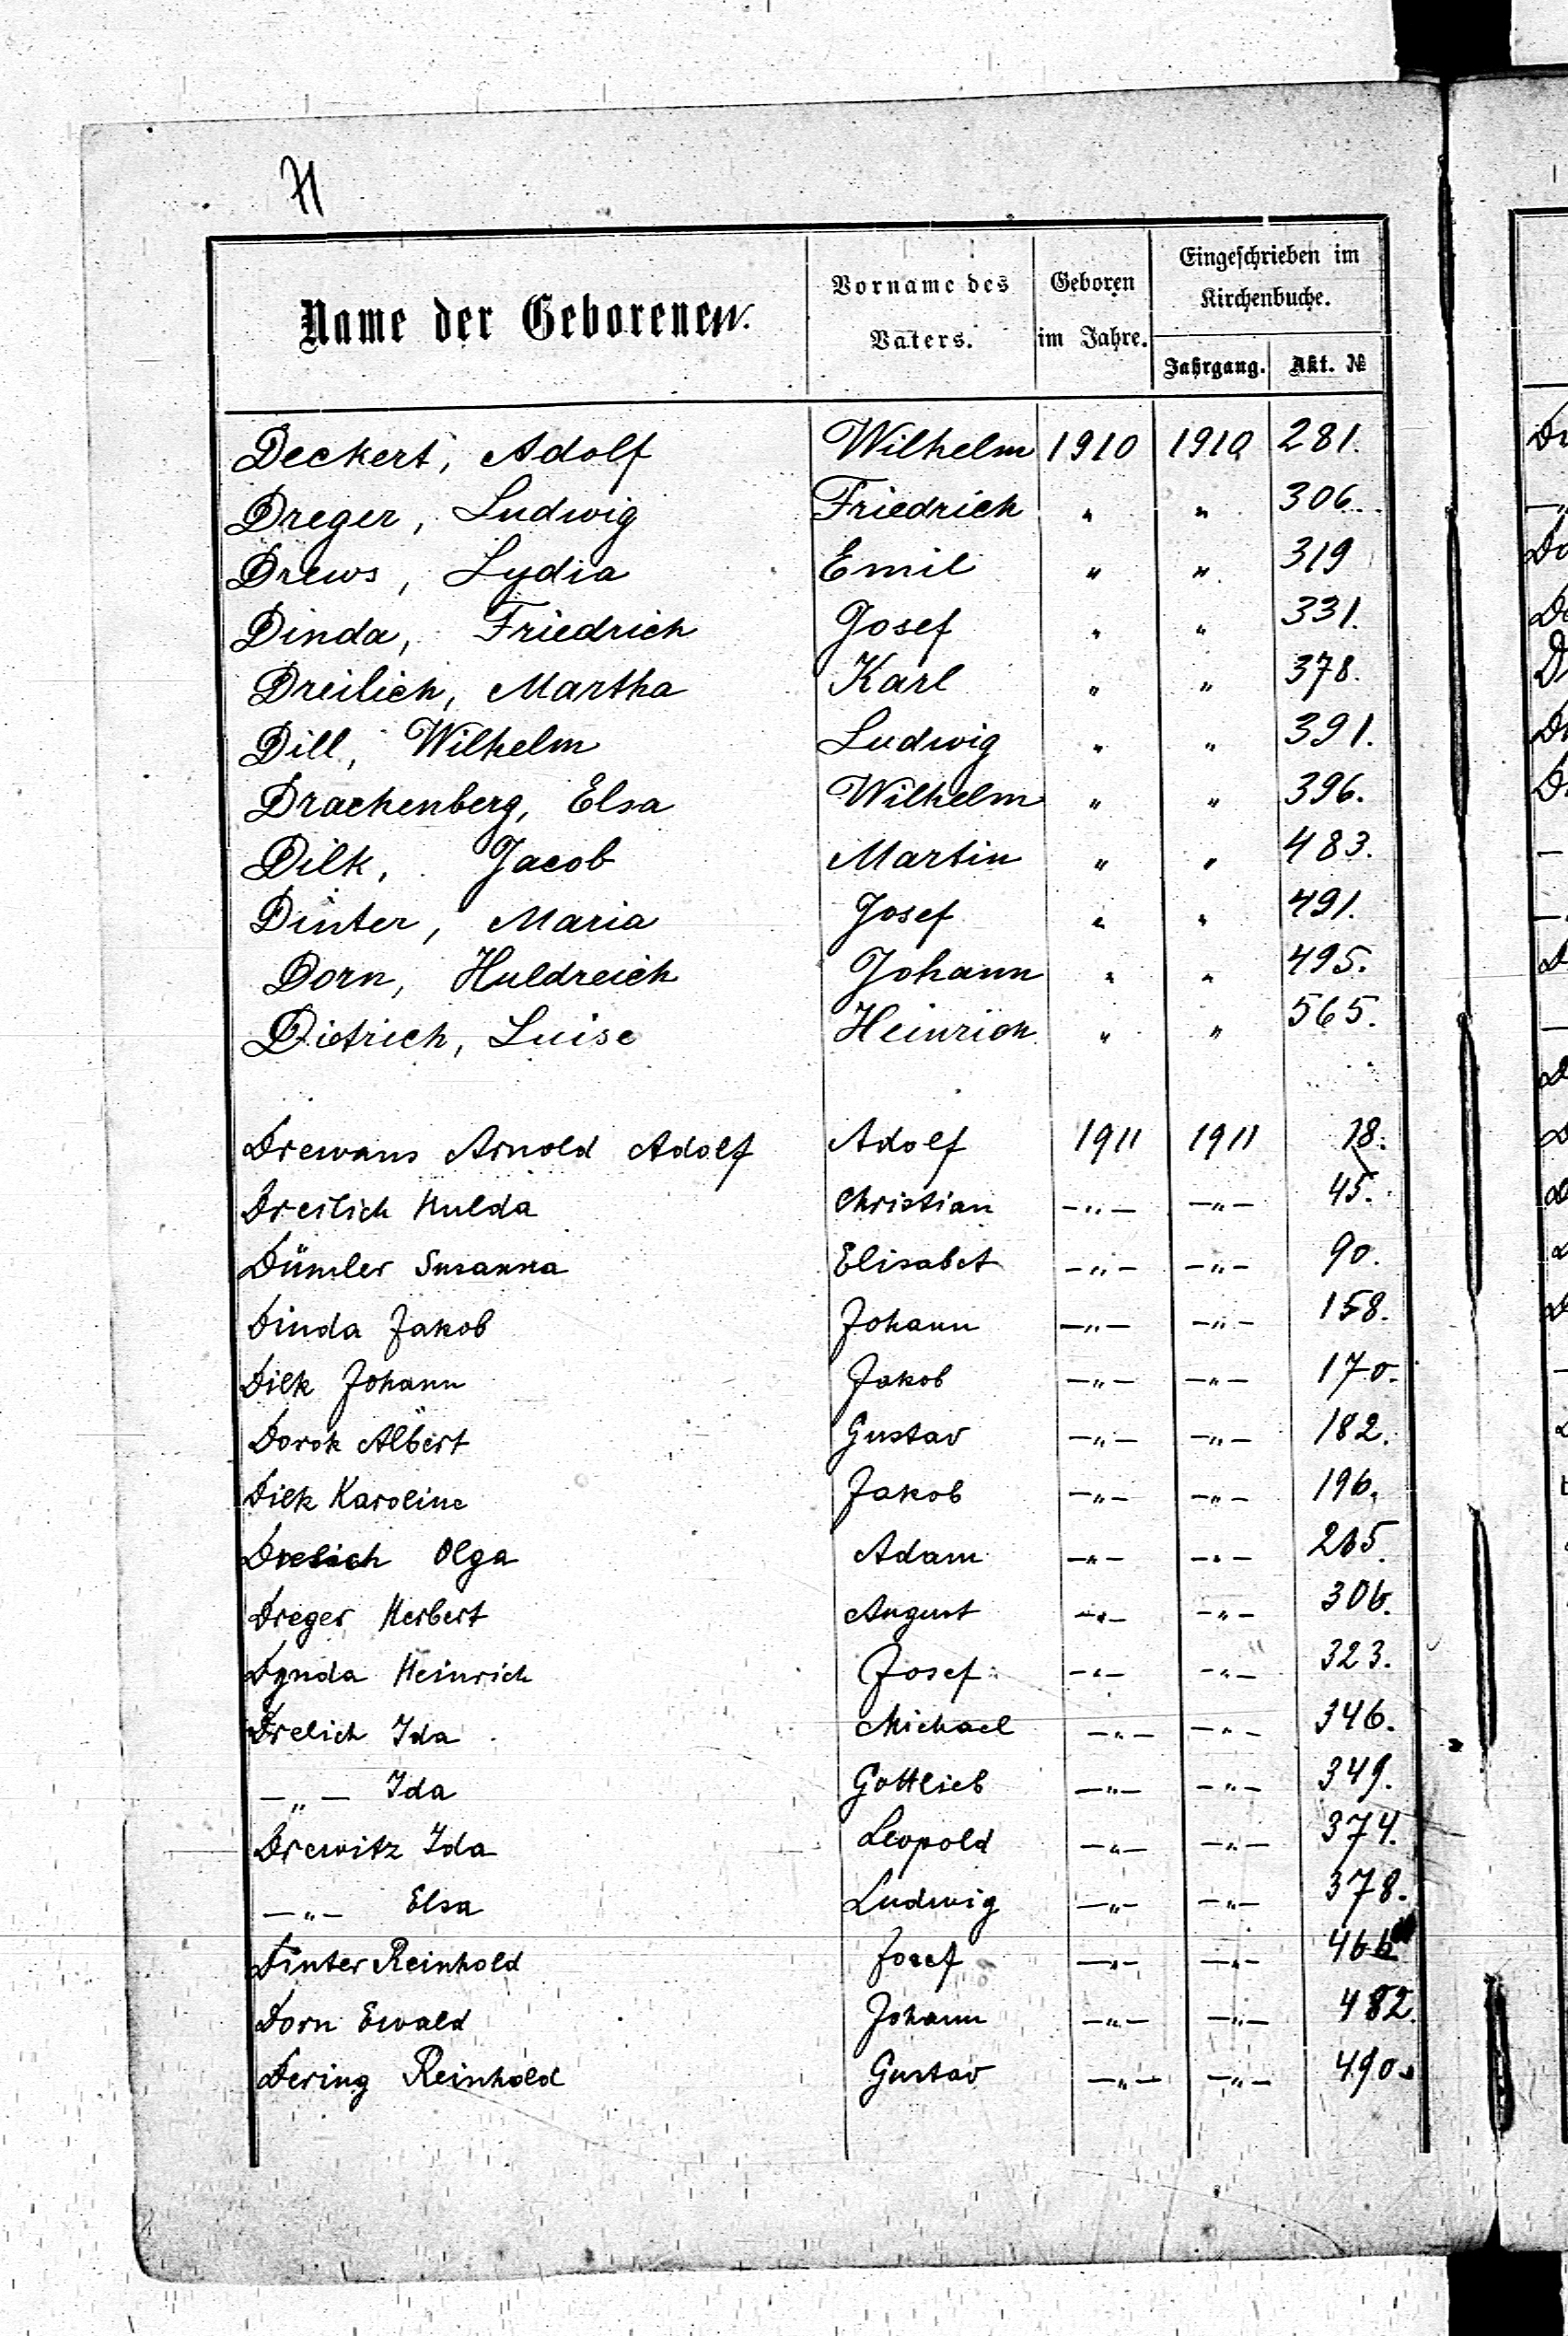 71
Name der Geborenen.
Vorname des Vaters.
Geboren im Jahre.
Eingeschrieben im Kirchenbuche.
Jahrgang. Akt. №
Deckert, Adolf Wilhelm 1910 1910 281.
Dreger, Ludwig Friedrich " " 306.
Drews, Lydia Emil " " 319
Dinda, Friedrich Josef " " 331.
Dreilich, Martha Karl " " 378.
Dill, Wilhelm Ludwig " " 391.
Drachenberg, Elsa Wilhelm " " 396.
Dilk, Jacob Martin " " 483.
Dinter, Maria Josef " " 491.
Dorn, Huldreich Johann " " 495.
Dietrich, Luise Heinrich " " 565.
Drewans Arnold Adolf Adolf 1911 1911 18.
Dreilich Hulda Christian —"— —"— 45.
Dümler Susanna Elisabet —"— —"— 90.
Dinda Jakob Johann —"— —"— 158.
Dilk Johann Jakob —"— —"— 170.
Dorok Albert Gustav —"— —"— 182.
Dilk Karoline Jakob —"— —"— 196.
Drelich Olga Adam —"— —"—
Dreger Herbert August —"— —"— 306.
Dynda Heinrich Josef —"— —"— 323.
Drelich Ida Michael —"— —"— 346.
—"— Ida Gottlieb —"— —"— 349.
Drewitz Ida Leopold —"— —"— 374.
—"— Elsa Ludwig —"— —"— 378.
Dinter Reinhold Josef —"— —"— 466
Dorn Ewald Johann —"— —"— 482.
Dering Reinhold Gustav —"— —"— 490.